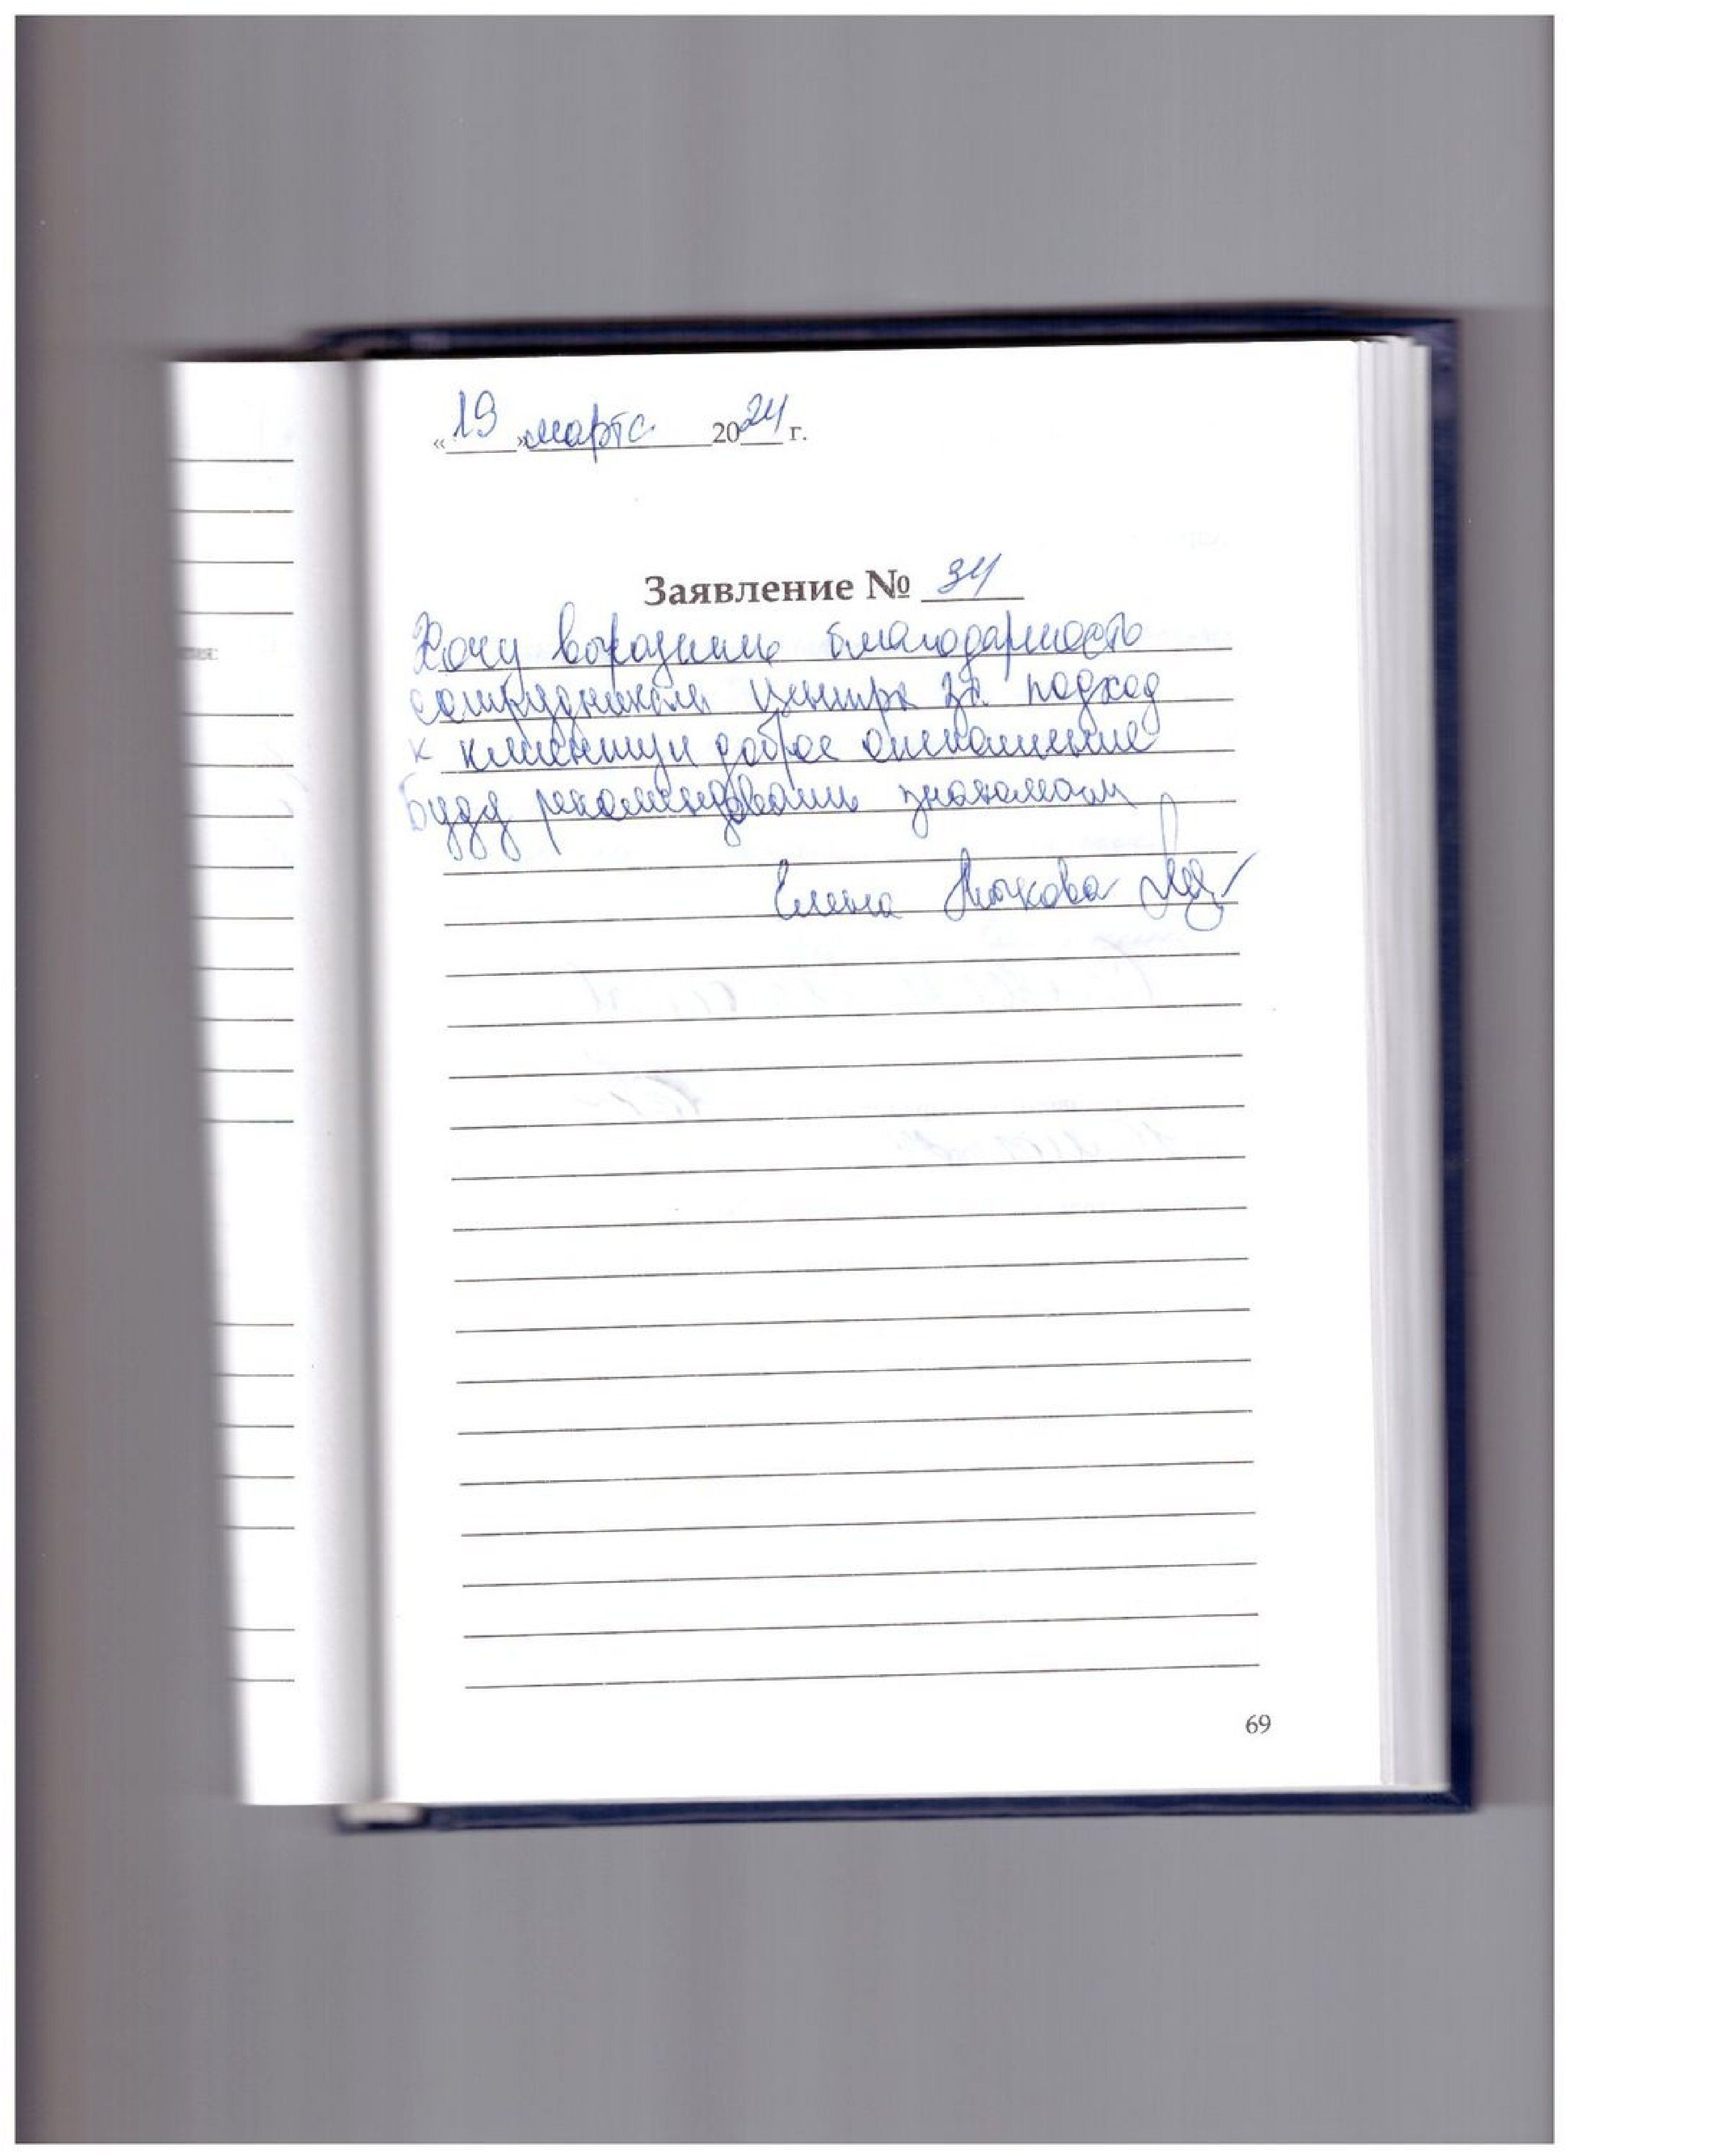 «19» марта 2024 г.
Заявление № 34
Хочу выразить благодарность
сотрудникам центра за подход
к клиенту и доброе отношение
Буду рекомендовать знакомым
Елена
69